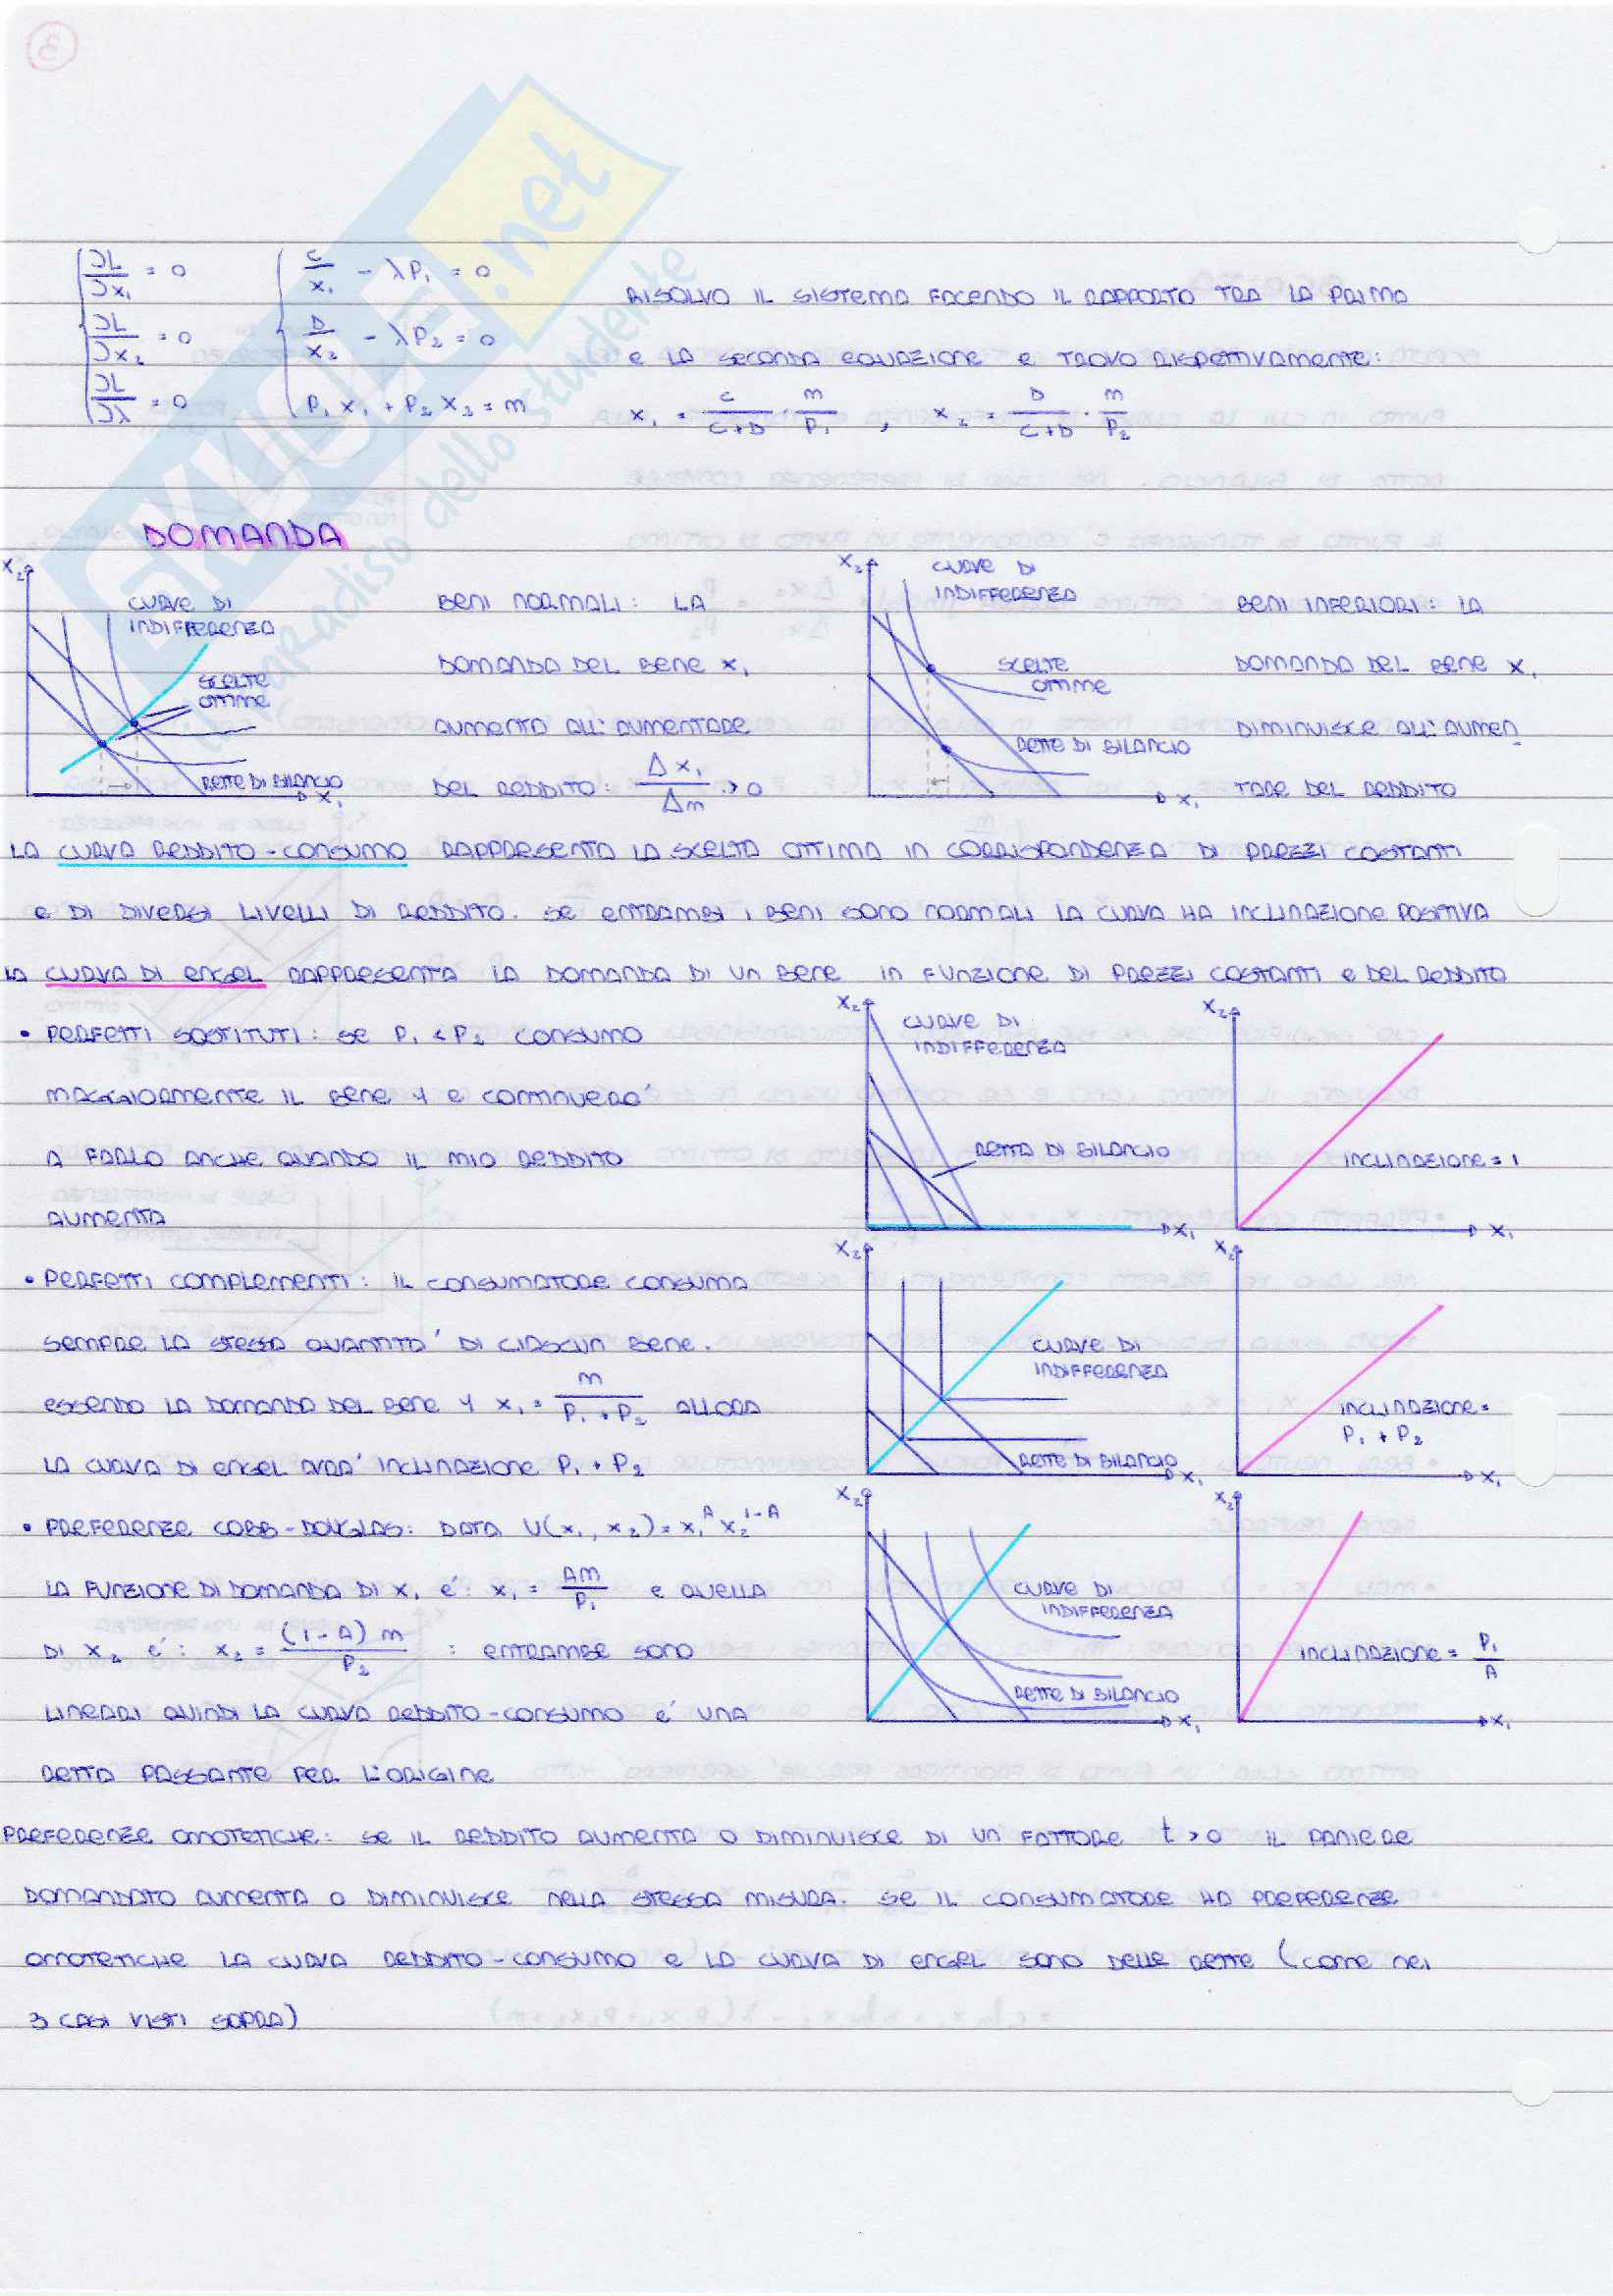 3
SKUOLA.net
il paradiso dello studente
∂L/∂x₁ = 0
∂L/∂x₂ = 0
∂L/∂λ = 0
C/x₁ - λP₁ = 0
D/x₂ - λP₂ = 0
P₁x₁ + P₂x₂ = m
RISOLVO IL SISTEMA FACENDO IL RAPPORTO TRA LA PRIMA
E LA SECONDA EQUAZIONE E TROVO RISPETTIVAMENTE:
x₁ = C/(C+D) · m/P₁ , x₂ = D/(C+D) · m/P₂
DOMANDA
x₂
CURVE DI
INDIFFERENZA
SCELTE
OTTIME
RETTE DI BILANCIO
x₁
BENI NORMALI: LA
DOMANDA DEL BENE x₁
AUMENTA ALL'AUMENTARE
DEL REDDITO: Δx₁/Δm > 0
x₂
CURVE DI
INDIFFERENZA
SCELTE
OTTIME
RETTE DI BILANCIO
x₁
BENI INFERIORI: LA
DOMANDA DEL BENE x₁
DIMINUISCE ALL'AUMEN_
TARE DEL REDDITO
LA CURVA REDDITO-CONSUMO RAPPRESENTA LA SCELTA OTTIMA IN CORRISPONDENZA DI PREZZI COSTANTI
E DI DIVERSI LIVELLI DI REDDITO. SE ENTRAMBI I BENI SONO NORMALI LA CURVA HA INCLINAZIONE POSITIVA
LA CURVA DI ENGEL RAPPRESENTA LA DOMANDA DI UN BENE IN FUNZIONE DI PREZZI COSTANTI E DEL REDDITO
• PERFETTI SOSTITUTI: SE P₁ < P₂ CONSUMO
MAGGIORMENTE IL BENE 1 E CONTINUERO'
A FARLO ANCHE QUANDO IL MIO REDDITO
AUMENTA
x₂
CURVE DI
INDIFFERENZA
RETTA DI BILANCIO
x₁
x₂
INCLINAZIONE = 1
x₁
• PERFETTI COMPLEMENTI: IL CONSUMATORE CONSUMA
SEMPRE LA STESSA QUANTITA' DI CIASCUN BENE.
ESSENDO LA DOMANDA DEL BENE 1 x₁ = m/(P₁ + P₂) ALLORA
LA CURVA DI ENGEL AVRA' INCLINAZIONE P₁ + P₂
x₂
CURVE DI
INDIFFERENZA
RETTE DI BILANCIO
x₁
x₂
INCLINAZIONE =
P₁ + P₂
x₁
• PREFERENZE COBB-DOUGLAS: DATA U(x₁, x₂) = x₁ᴬ x₂¹⁻ᴬ
LA FUNZIONE DI DOMANDA DI x₁ E': x₁ = AM/P₁ E QUELLA
DI x₂ E': x₂ = (1-A)m/P₂ : ENTRAMBE SONO
LINEARI QUINDI LA CURVA REDDITO-CONSUMO E' UNA
RETTA PASSANTE PER L'ORIGINE
x₂
CURVE DI
INDIFFERENZA
RETTE DI BILANCIO
x₁
x₂
INCLINAZIONE = P₁/A
x₁
PREFERENZE OMOTETICHE: SE IL REDDITO AUMENTA O DIMINUISCE DI UN FATTORE t > 0 IL PANIERE
DOMANDATO AUMENTA O DIMINUISCE NELLA STESSA MISURA. SE IL CONSUMATORE HA PREFERENZE
OMOTETICHE LA CURVA REDDITO-CONSUMO E LA CURVA DI ENGEL SONO DELLE RETTE (COME NEI
3 CASI VISTI SOPRA)